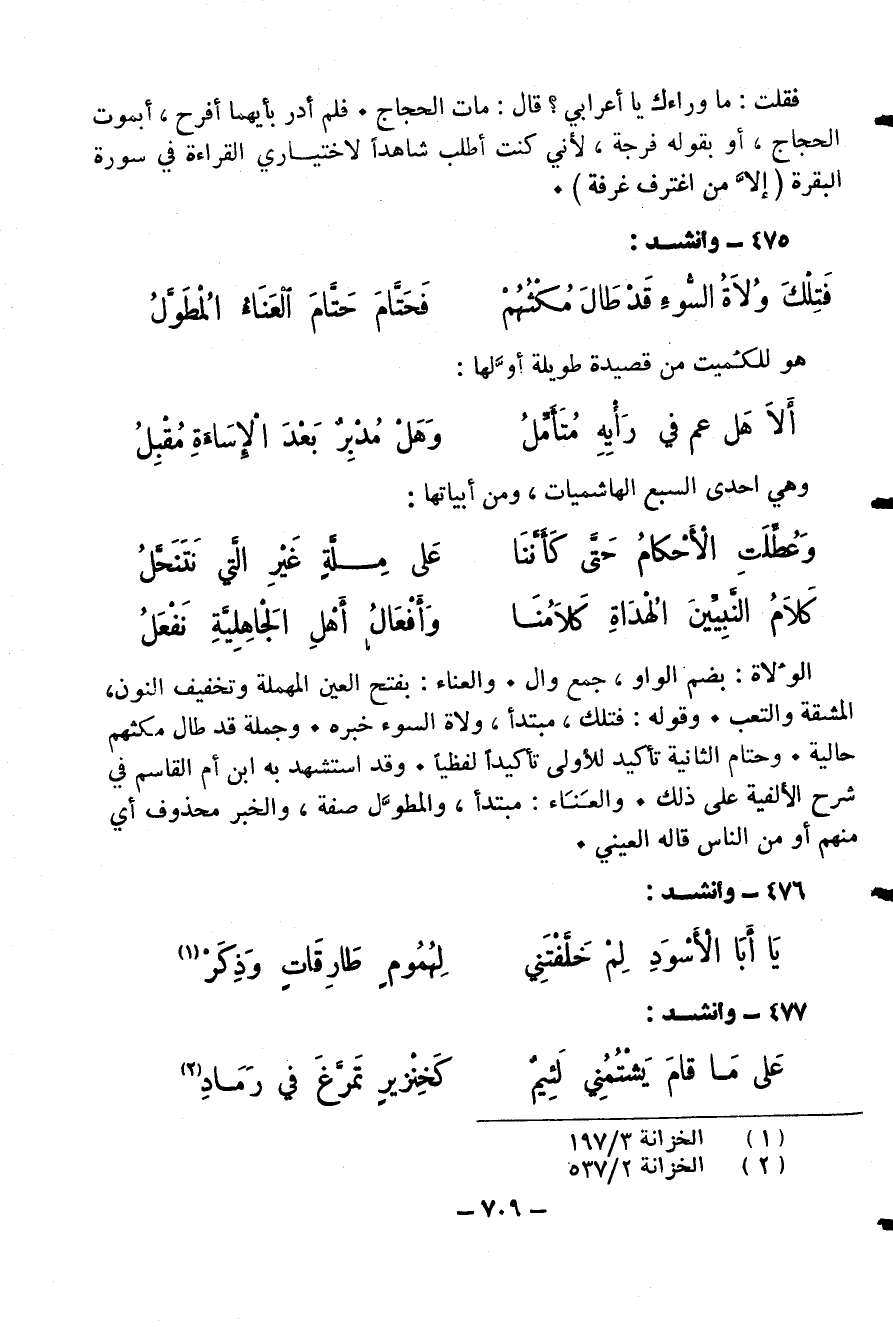 فقلت : ما وراءك يا أعرابي ؟ قال : مات الحجاج • فلم أدر بأيهما أفرح ، أبموت
الحجاج ، أو بقوله فرجة ، لأني كنت أطلب شاهداً لاختيــاري القراءة في سورة
البقرة ( إلاَّ من اغترف غرفة ) •
٤٧٥ ــ وأنشــد :
فَتِلْكَ وُلاَةُ السُّوءِ قَدْ طَالَ مُكْثُهُمْ فَحَتَّامَ حَتَّامَ الْعَنَاءُ الْمُطَوَّلُ
هو للكميت من قصيدة طويلة أوَّلها :
أَلاَ هَل عم في رَأْيِهِ مُتَأَمِّلُ وَهَلْ مُدْبِرٌ بَعْدَ الْإِسَاءَةِ مُقْبِلُ
وهي احدى السبع الهاشميات ، ومن أبياتها :
وَعُطِّلَتِ الْأَحْكامُ حَتَّى كَأَنَّنَا عَلى مِــلَّةٍ غَيْرِ الَّتي نَتَنَحَّلُ
كَلاَمُ النَّبِيِّينَ الْهُدَاةِ كَلاَمُنَــا وَأَفْعَالُ أَهْلِ الجَاهِلِيَّةِ نَفْعَلُ
الوُلاة : بضم الواو ، جمع وال • والعناء : بفتح العين المهملة وتخفيف النون،
المشقة والتعب • وقوله : فتلك ، مبتدأ ، ولاة السوء خبره • وجملة قد طال مكثهم
حالية • وحتام الثانية تأكيد للأولى تأكيداً لفظياً • وقد استشهد به ابن أم القاسم في
شرح الألفية على ذلك • والعَنَاء : مبتدأ ، والمطوَّل صفة ، والخبر محذوف أي
منهم أو من الناس قاله العيني •
٤٧٦ ــ وأنشــد :
يَا أَبَا الْأَسْوَدِ لِمْ خَلَّفْتَنِي لِهُمُومٍ طَارِقَاتٍ وَذِكَرْ (١)
٤٧٧ ــ وأنشــد :
عَلى مَــا قامَ يَشْتُمُنِي لَئِيمٌ كَخِنْزِيرٍ تَمَرَّغَ في رَمَــادِ (٢)
( ١ ) الخزانة ١٩٧/٣
( ٢ ) الخزانة ٥٣٧/٢
ــ ٧٠٩ ــ